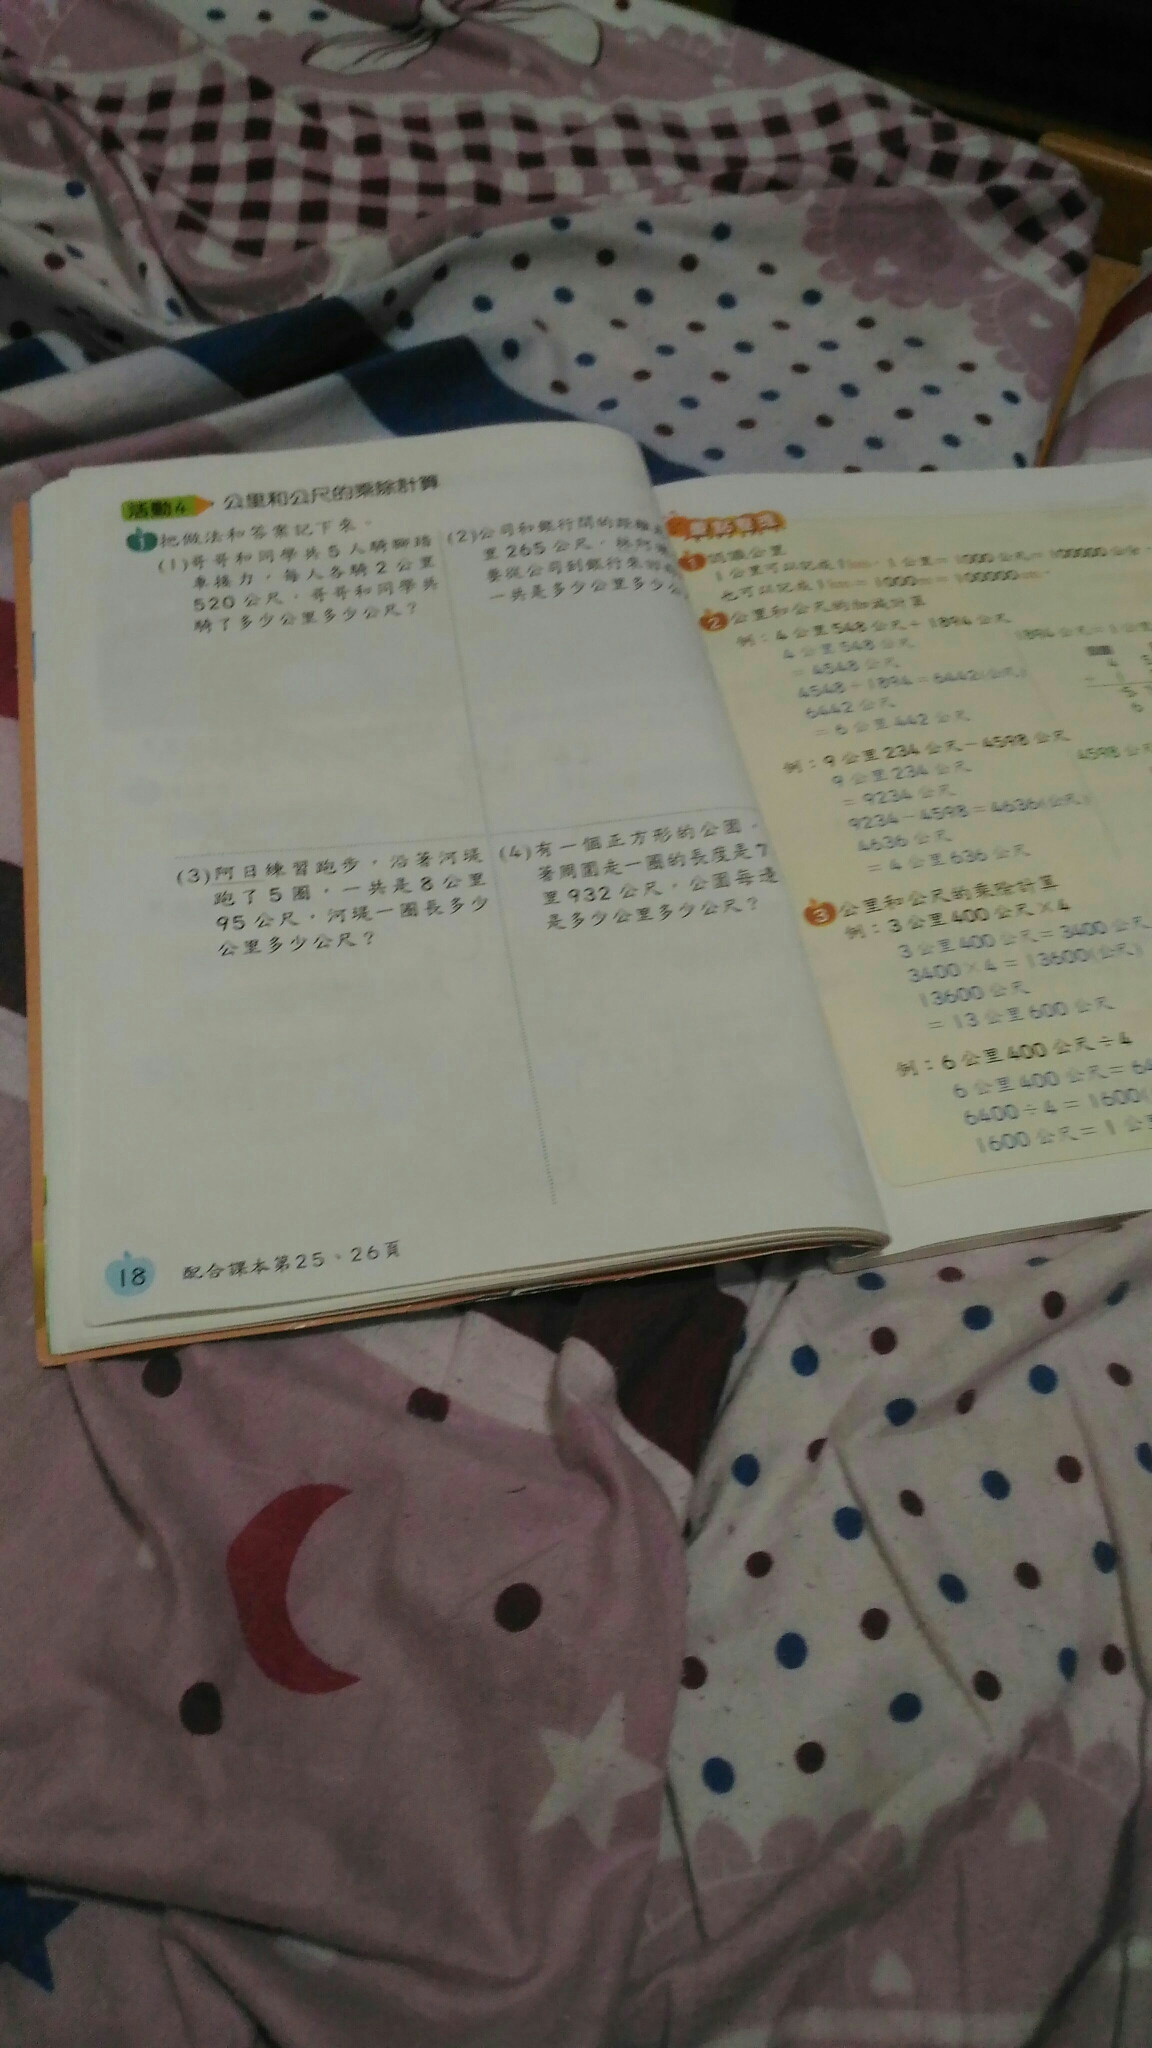 活動4 公里和公尺的乘除計算
1 把做法和答案記下來。
(1)哥哥和同學共5人騎腳踏
車接力,每人各騎2公里
520公尺,哥哥和同學共
騎了多少公里多少公尺?
(2)公司和銀行間的距離
里265公尺,
要從公司到銀行來回
一共是多少公里多少
(3)阿日練習跑步,沿著河堤
跑了5圈,一共是8公里
95公尺,河堤一圈長多少
公里多少公尺?
(4)有一個正方形的公園,
著周圍走一圈的長度是7
里932公尺,公園每邊
是多少公里多少公尺?
18 配合課本第25、26頁
重點整理
1 認識公里
1公里可以記成1km,1公里=1000公尺=100000公分,
也可以記成1km=1000m=100000cm。
2 公里和公尺的加減計算
例:4公里548公尺+1894公尺
4公里548公尺
=4548公尺
4548+1894=6442(公尺)
6442公尺
=6公里442公尺
1894公尺=1公里
例:9公里234公尺-4598公尺
9公里234公尺
=9234公尺
9234-4598=4636(公尺)
4636公尺
=4公里636公尺
4598公尺
3 公里和公尺的乘除計算
例:3公里400公尺×4
3公里400公尺=3400公尺
3400×4=13600(公尺)
13600公尺
=13公里600公尺
例:6公里400公尺÷4
6公里400公尺=64
6400÷4=1600(
1600公尺=1公里